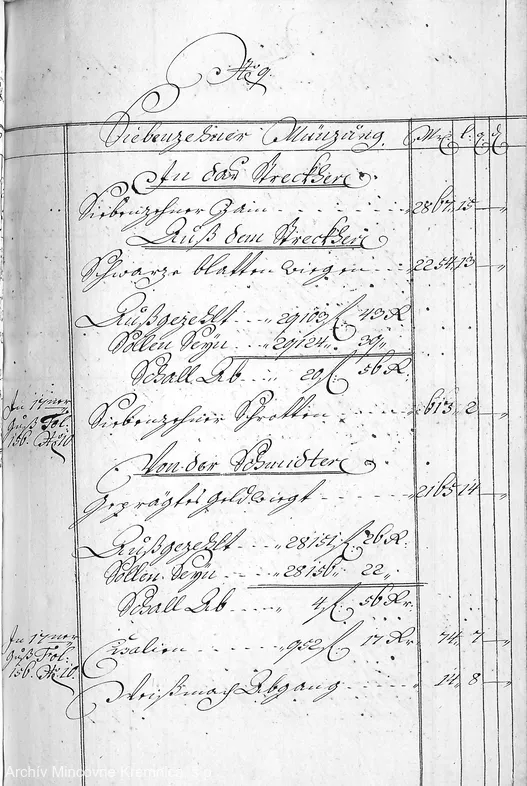 No 9.
Siebenzehner Münzung. Mr: l. q d
In das Streckhen
Siebenzehner Zain 2867. 15 —
Auß dem Streckhen
Schwarze blatten wiegen 2254. 13 —
Außgezehlt 29103 f. 43 K
Sollen Seyn 29124 „ 39 „
Schall Ab 20 f. 56 K.
In 17ner
Guß Fol:
156. No 10
Siebenzehner Schrotten 613 „ 2 —
Von der Schmidten
Geprägtes Geld wiegt 2165 14 —
Außgezehlt 28151 f. 26 K.
Sollen Seyn 28156 „ 22 „
Schall Ab 4 f. 56 Kr.
In 17ner
Guß Fol:
156. No 10.
Cisalien 952 f. 17 Kr 74 „ 7 —
Weißmach Abgang 14 „ 8 —
Archiv Mincovne Kremnica, š.p.